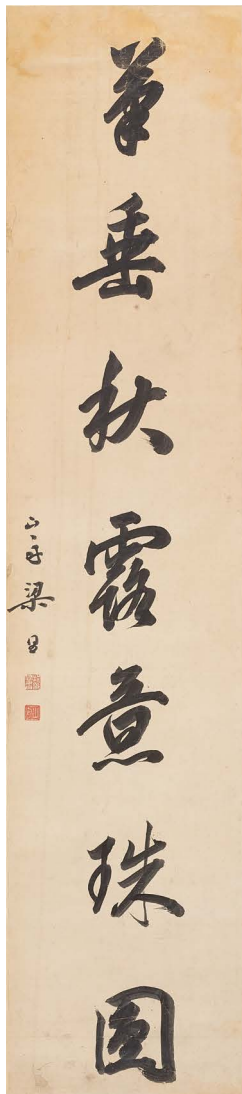 筆垂秋露意珠圓
山舟梁